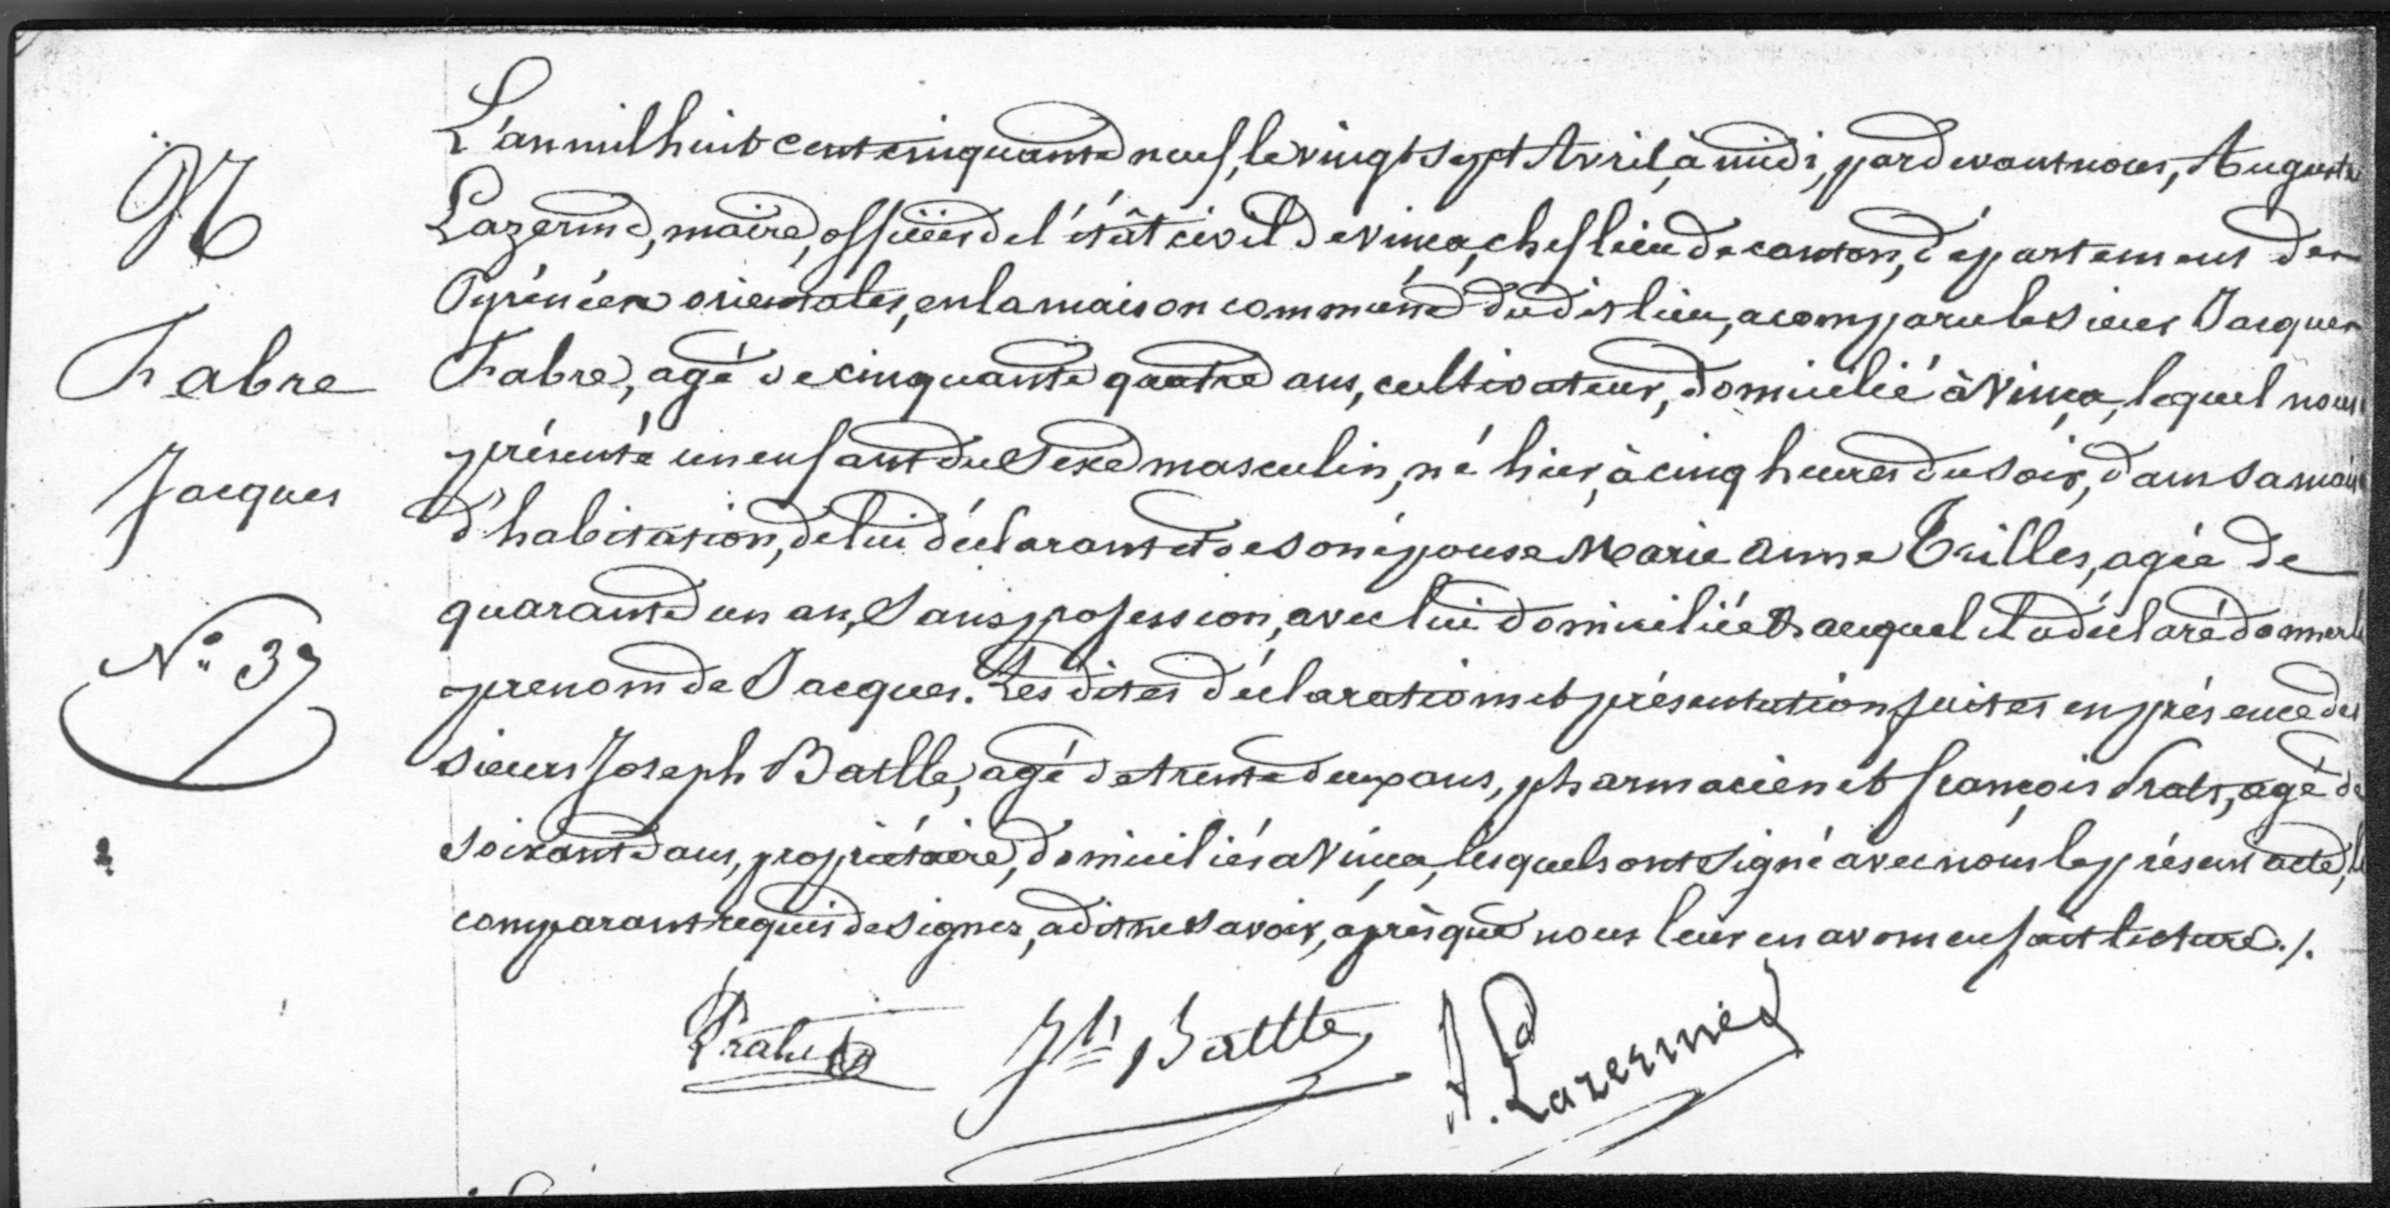 N
Fabre
Jacques
N° 37
L'an mil huit cent cinquante neuf, le vingt sept Avril, à midi, pardevant nous, Auguste
Lazerme, maire, officier de l'état civil de Vinça, chef lieu de canton, département des
Pyrénées orientales, en la maison commune dudit lieu, a comparu le sieur Jacques
Fabre, agé de cinquante quatre ans, cultivateur, domicilié à Vinça, lequel nous
présenté un enfant du Sexe masculin, né hier, à cinq heures du soir, dans sa mais
d'habitation, de lui déclarant et de son épouse Marie Anne Trilles, agée de
quarante un an, Sans profession, avec lui domiciliée & auquel il a déclaré donner le
prenom de Jacques. Les dites déclaration et présentation faites en présence des
sieurs Joseph Batlle, agé de trente deux ans, pharmacien et françois Prats, agé de
soixante ans, propriétaire, domiciliés a Vinça, lesquels ont Signé avec nous le présent acte, le
comparant requis de Signer, a dit ne Savoir, après que nous leur en avons eu fait lecture./.
Jh Batlle
A. Lazerme